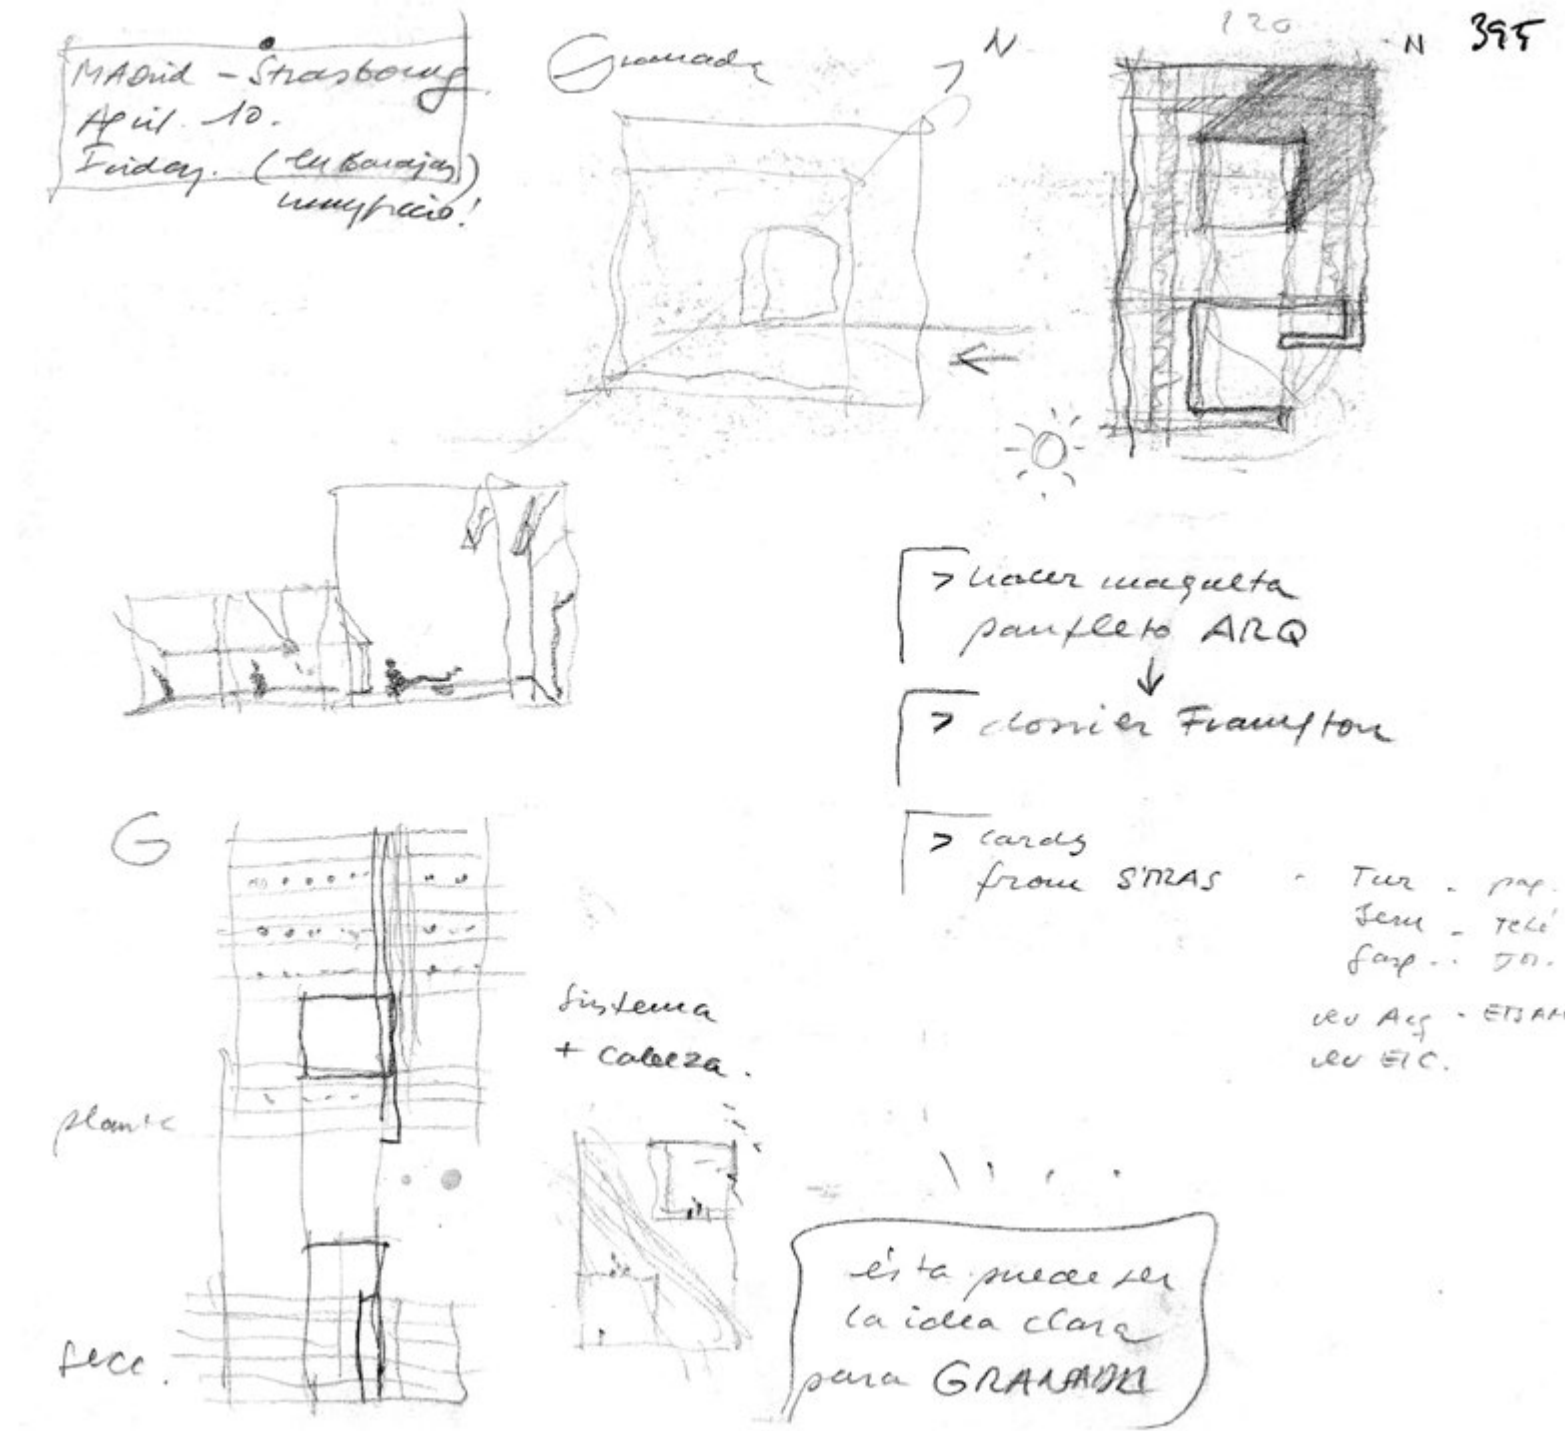 MADrid - Strasbourg
April. 10.
Friday. (en Barajas)
muy frío!
Granada
N
120
N 395
> hacer maqueta
panfleto ARQ
> dossier Frampton
> cards
from STRAS - Tur - pap.
Sem - Telé
en Arq - ETSAM
en EIC.
G
Sistema
+ cabeza.
planta
secc.
ésta puede ser
la idea clara
para GRANADA